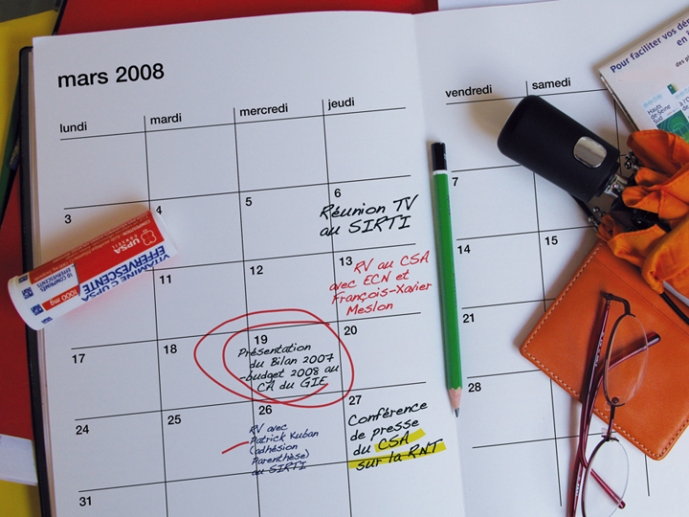 mars 2008
lundi mardi mercredi jeudi vendredi samedi
3 4 5 6 7
Réunion TV
au SIRTI
11 12 13 14 15
RV au CSA
avec ECN et
François-Xavier
Meslon
17 18 19 20 21
Présentation
du Bilan 2007
-budget 2008 au
CA du GIE
24 25 26 27 28
RV avec
Patrick Kuban
(adhésion
Parenthèse)
au SIRTI
Conférence
de presse
du CSA
sur la RNT
31
VITAMINE C UPSA
EFFERVESCENTE
1000 mg
UPSA
Pour faciliter vos
en
Hauts
de Seine
Sud